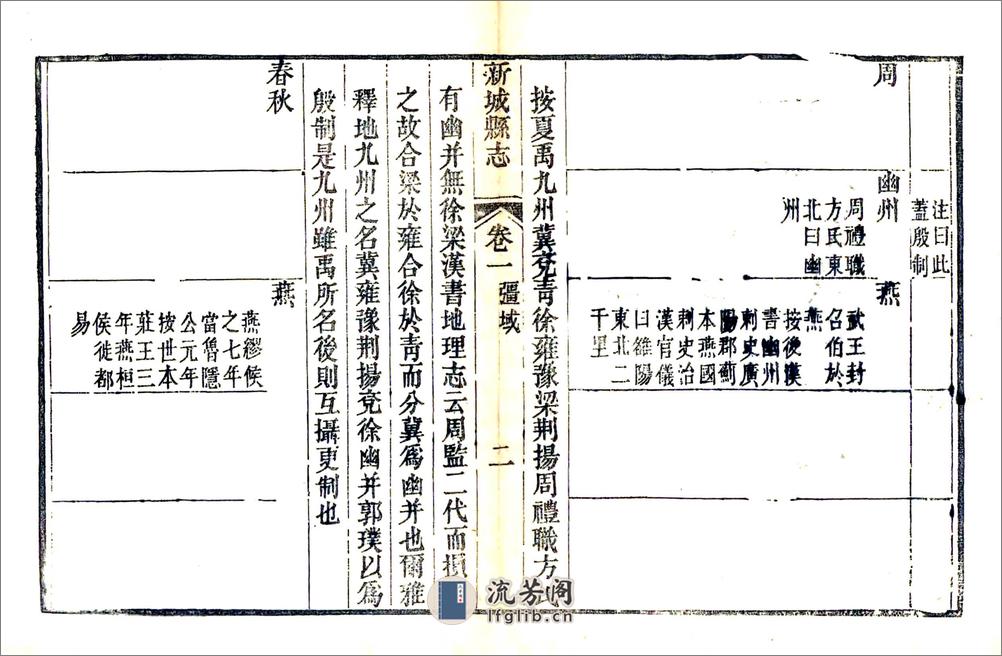 注曰此
蓋殷制
周
幽州
周禮職
方氏東
北曰幽
州
燕
武王封
召伯於
燕
按後漢
書幽州
刺史廣
陽郡薊
本燕國
刺史治
漢官儀
曰雒陽
東北二
千里
按夏禹九州冀兗青徐雍豫梁荆揚周禮職方氏
新城縣志
卷一
疆域
二
有幽并無徐梁漢書地理志云周監二代而損
之故合梁於雍合徐於青而分冀爲幽并也爾雅
釋地九州之名冀雍豫荆揚兗徐幽并郭璞以爲
殷制是九州雖禹所名後則互攝更制也
春秋
燕
燕繆侯
之七年
當魯隱
公元年
按世本
莊王三
年燕桓
侯徙都
易
流芳阁
lfglib.cn